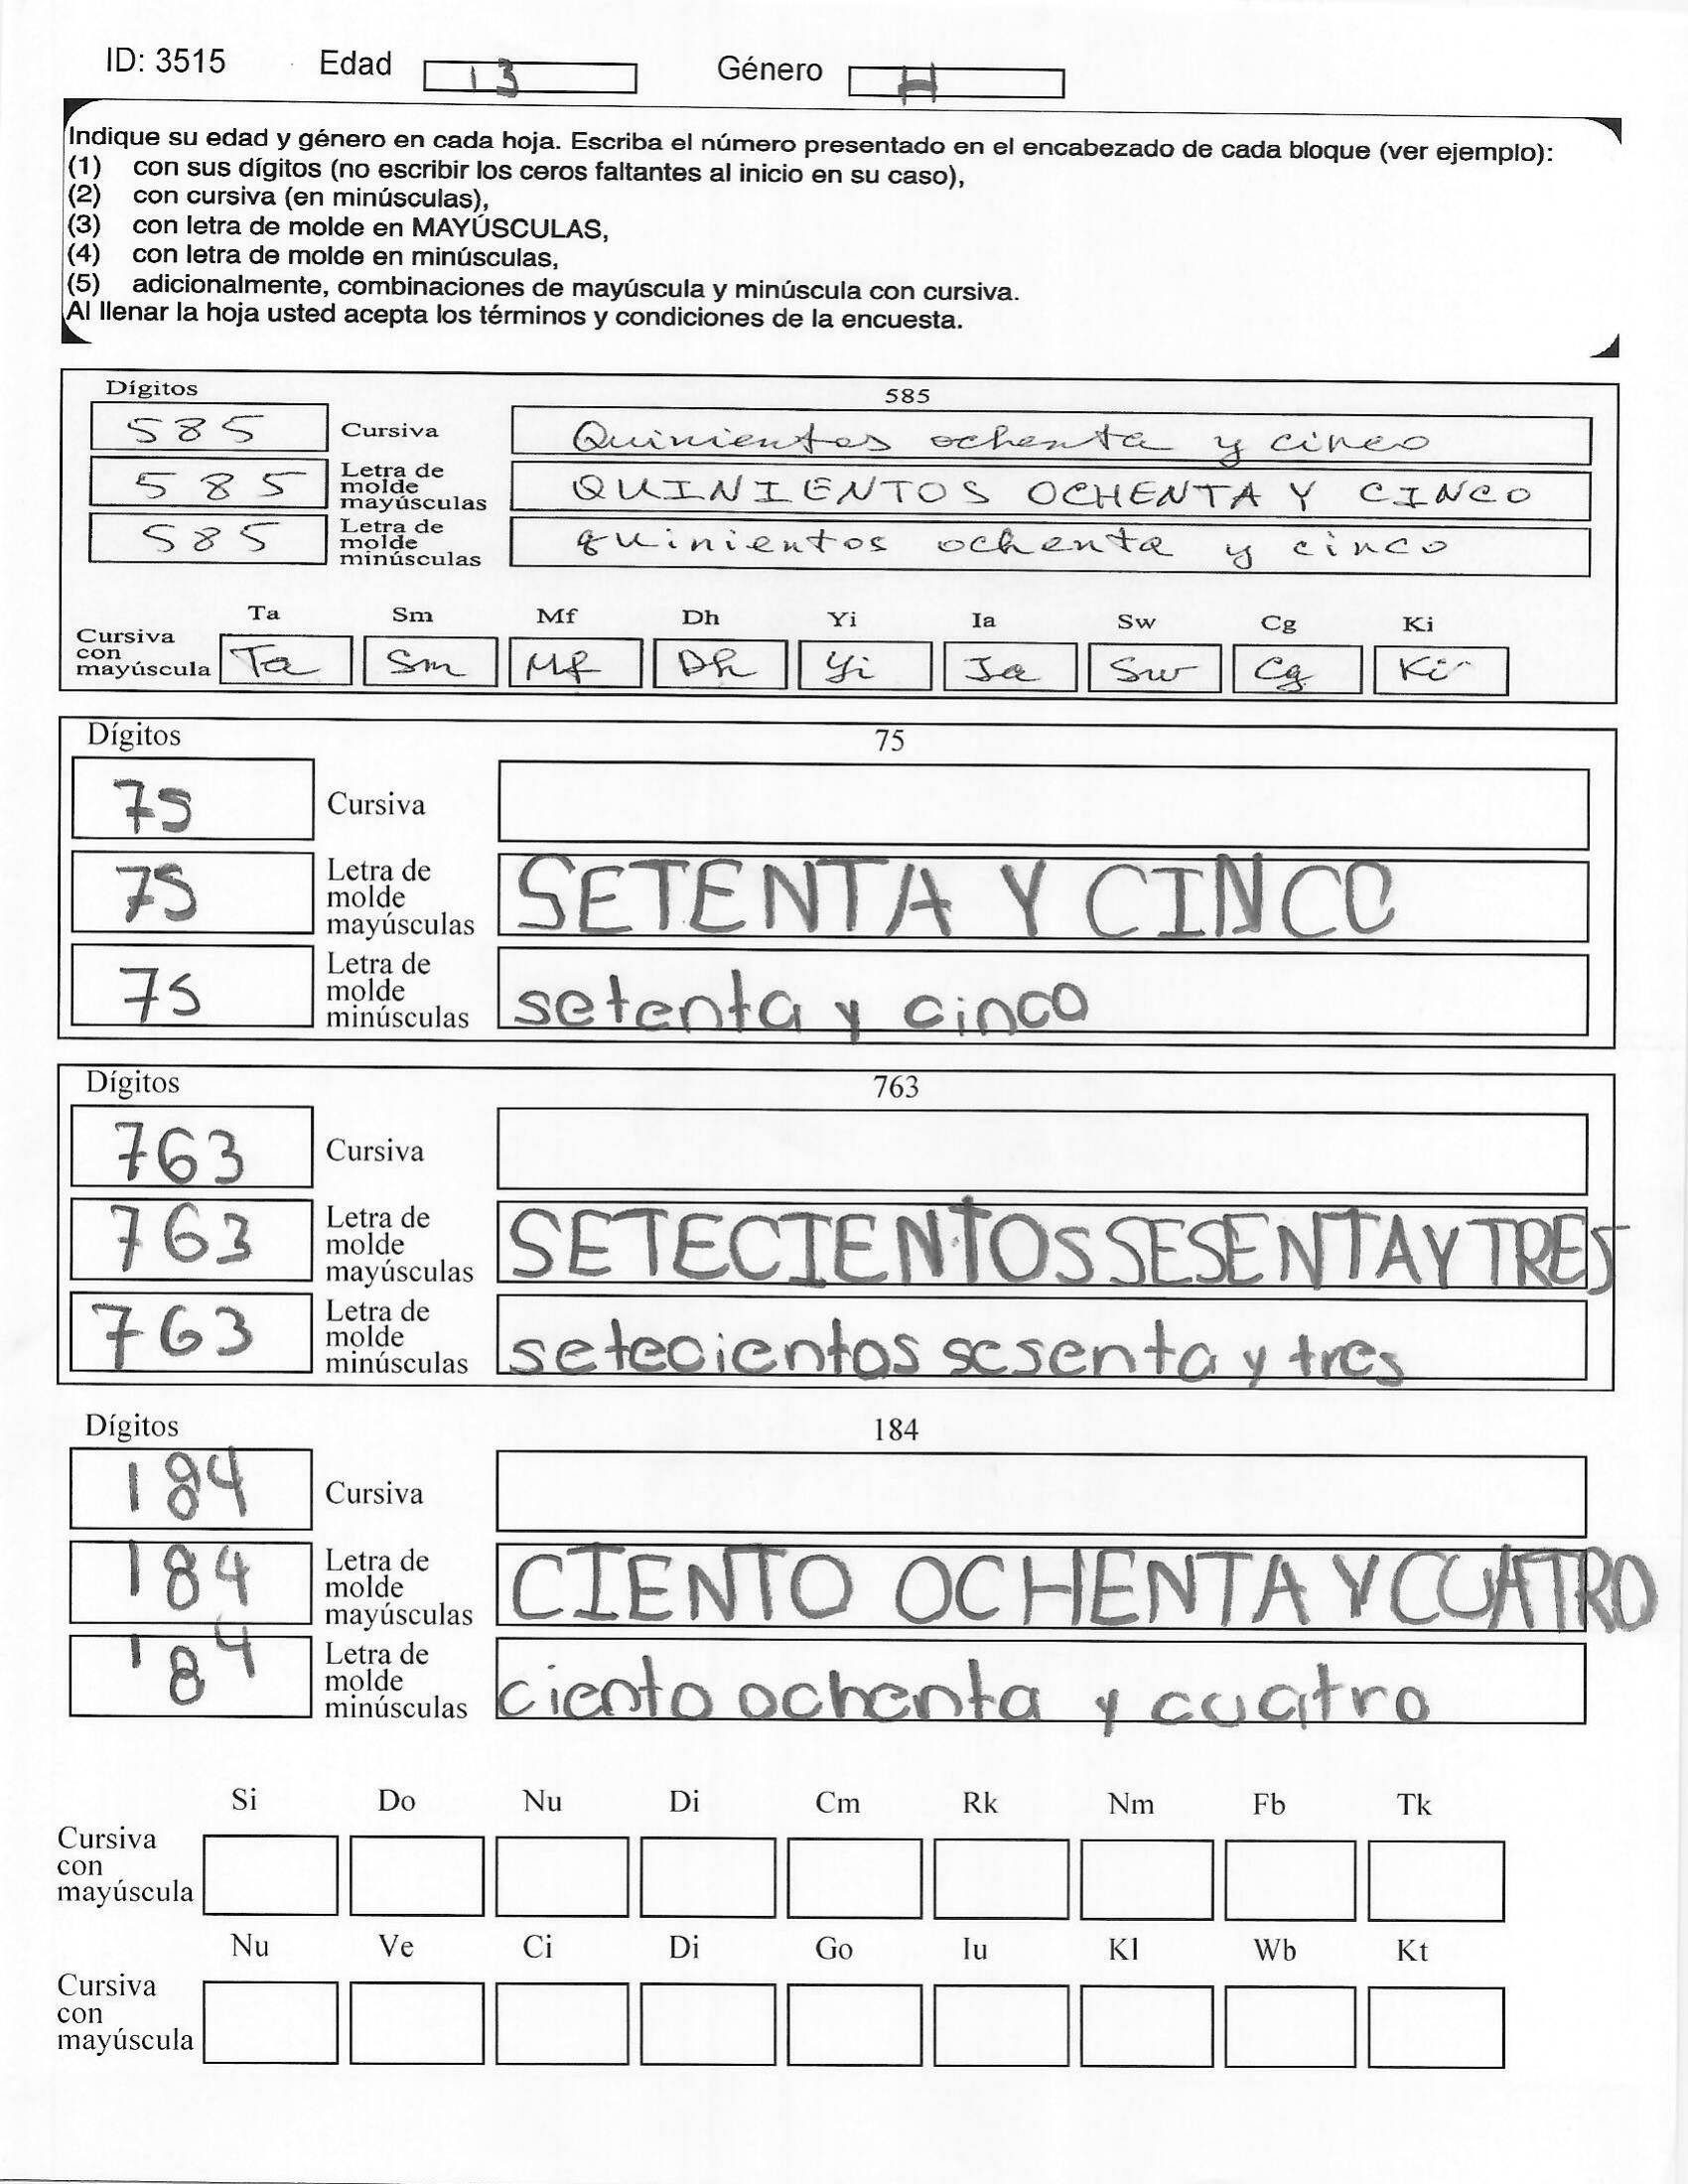 ID: 3515 Edad 13 Género H
Indique su edad y género en cada hoja. Escriba el número presentado en el encabezado de cada bloque (ver ejemplo):
(1) con sus dígitos (no escribir los ceros faltantes al inicio en su caso),
(2) con cursiva (en minúsculas),
(3) con letra de molde en MAYÚSCULAS,
(4) con letra de molde en minúsculas,
(5) adicionalmente, combinaciones de mayúscula y minúscula con cursiva.
Al llenar la hoja usted acepta los términos y condiciones de la encuesta.
Dígitos 585
585 Cursiva Quinientos ochenta y cinco
585 Letra de molde mayúsculas QUINIENTOS OCHENTA Y CINCO
585 Letra de molde minúsculas quinientos ochenta y cinco
Ta Sm Mf Dh Yi Ia Sw Cg Ki
Cursiva con mayúscula Ta Sm Mf Dh Yi Ia Sw Cg Ki
Dígitos 75
75 Cursiva
75 Letra de molde mayúsculas SETENTA Y CINCO
75 Letra de molde minúsculas setenta y cinco
Dígitos 763
763 Cursiva
763 Letra de molde mayúsculas SETECIENTOS SESENTA Y TRES
763 Letra de molde minúsculas setecientos sesenta y tres
Dígitos 184
184 Cursiva
184 Letra de molde mayúsculas CIENTO OCHENTA Y CUATRO
184 Letra de molde minúsculas ciento ochenta y cuatro
Si Do Nu Di Cm Rk Nm Fb Tk
Cursiva con mayúscula
Nu Ve Ci Di Go Iu Kl Wb Kt
Cursiva con mayúscula